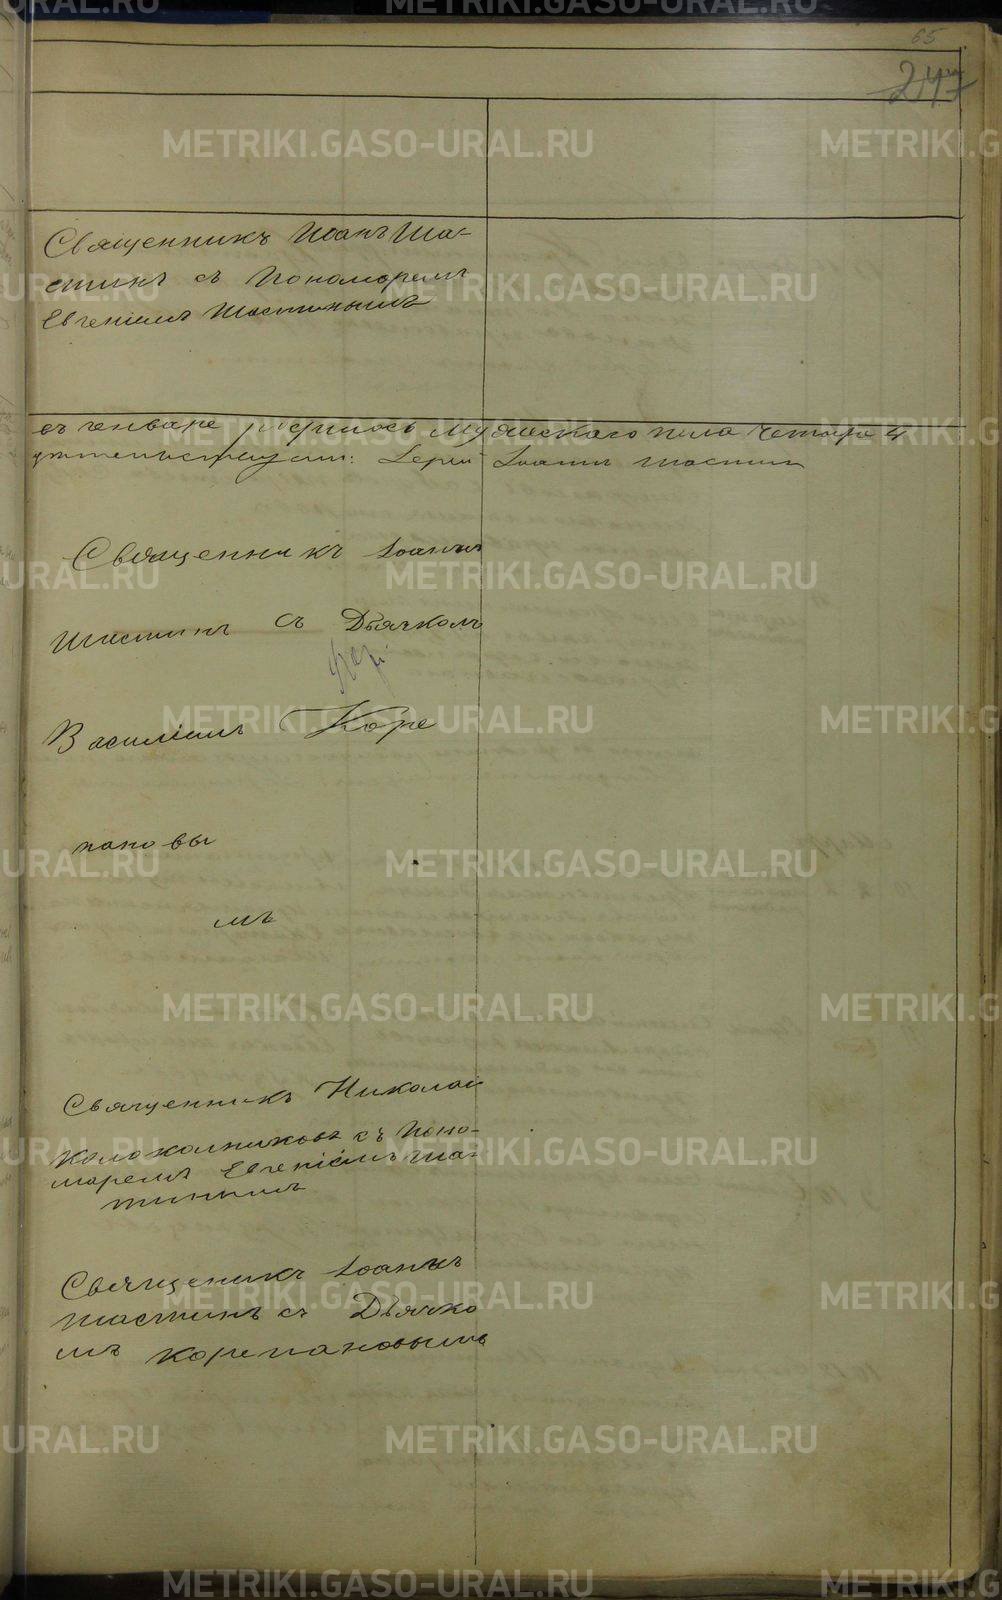 65
247
Священникъ Иоанъ Ша-
стинъ съ Пономаремъ
Евгеніемъ Шастинымъ
въ Генваре родилось мужескаго пола четыре 4
Іерей Іоаннъ Шастин
Священникъ Іоаннъ
Шастинъ съ Дьячкомъ
Василіемъ Коре
пановы
мъ
Священникъ Николай
Колоколниковъ съ Поно-
маремъ Евгеніемъ Шас
тинымъ
Священикъ Іоаннъ
Шастинъ съ Дьячко
мъ Корепановымъ
METRIKI.GASO-URAL.RU